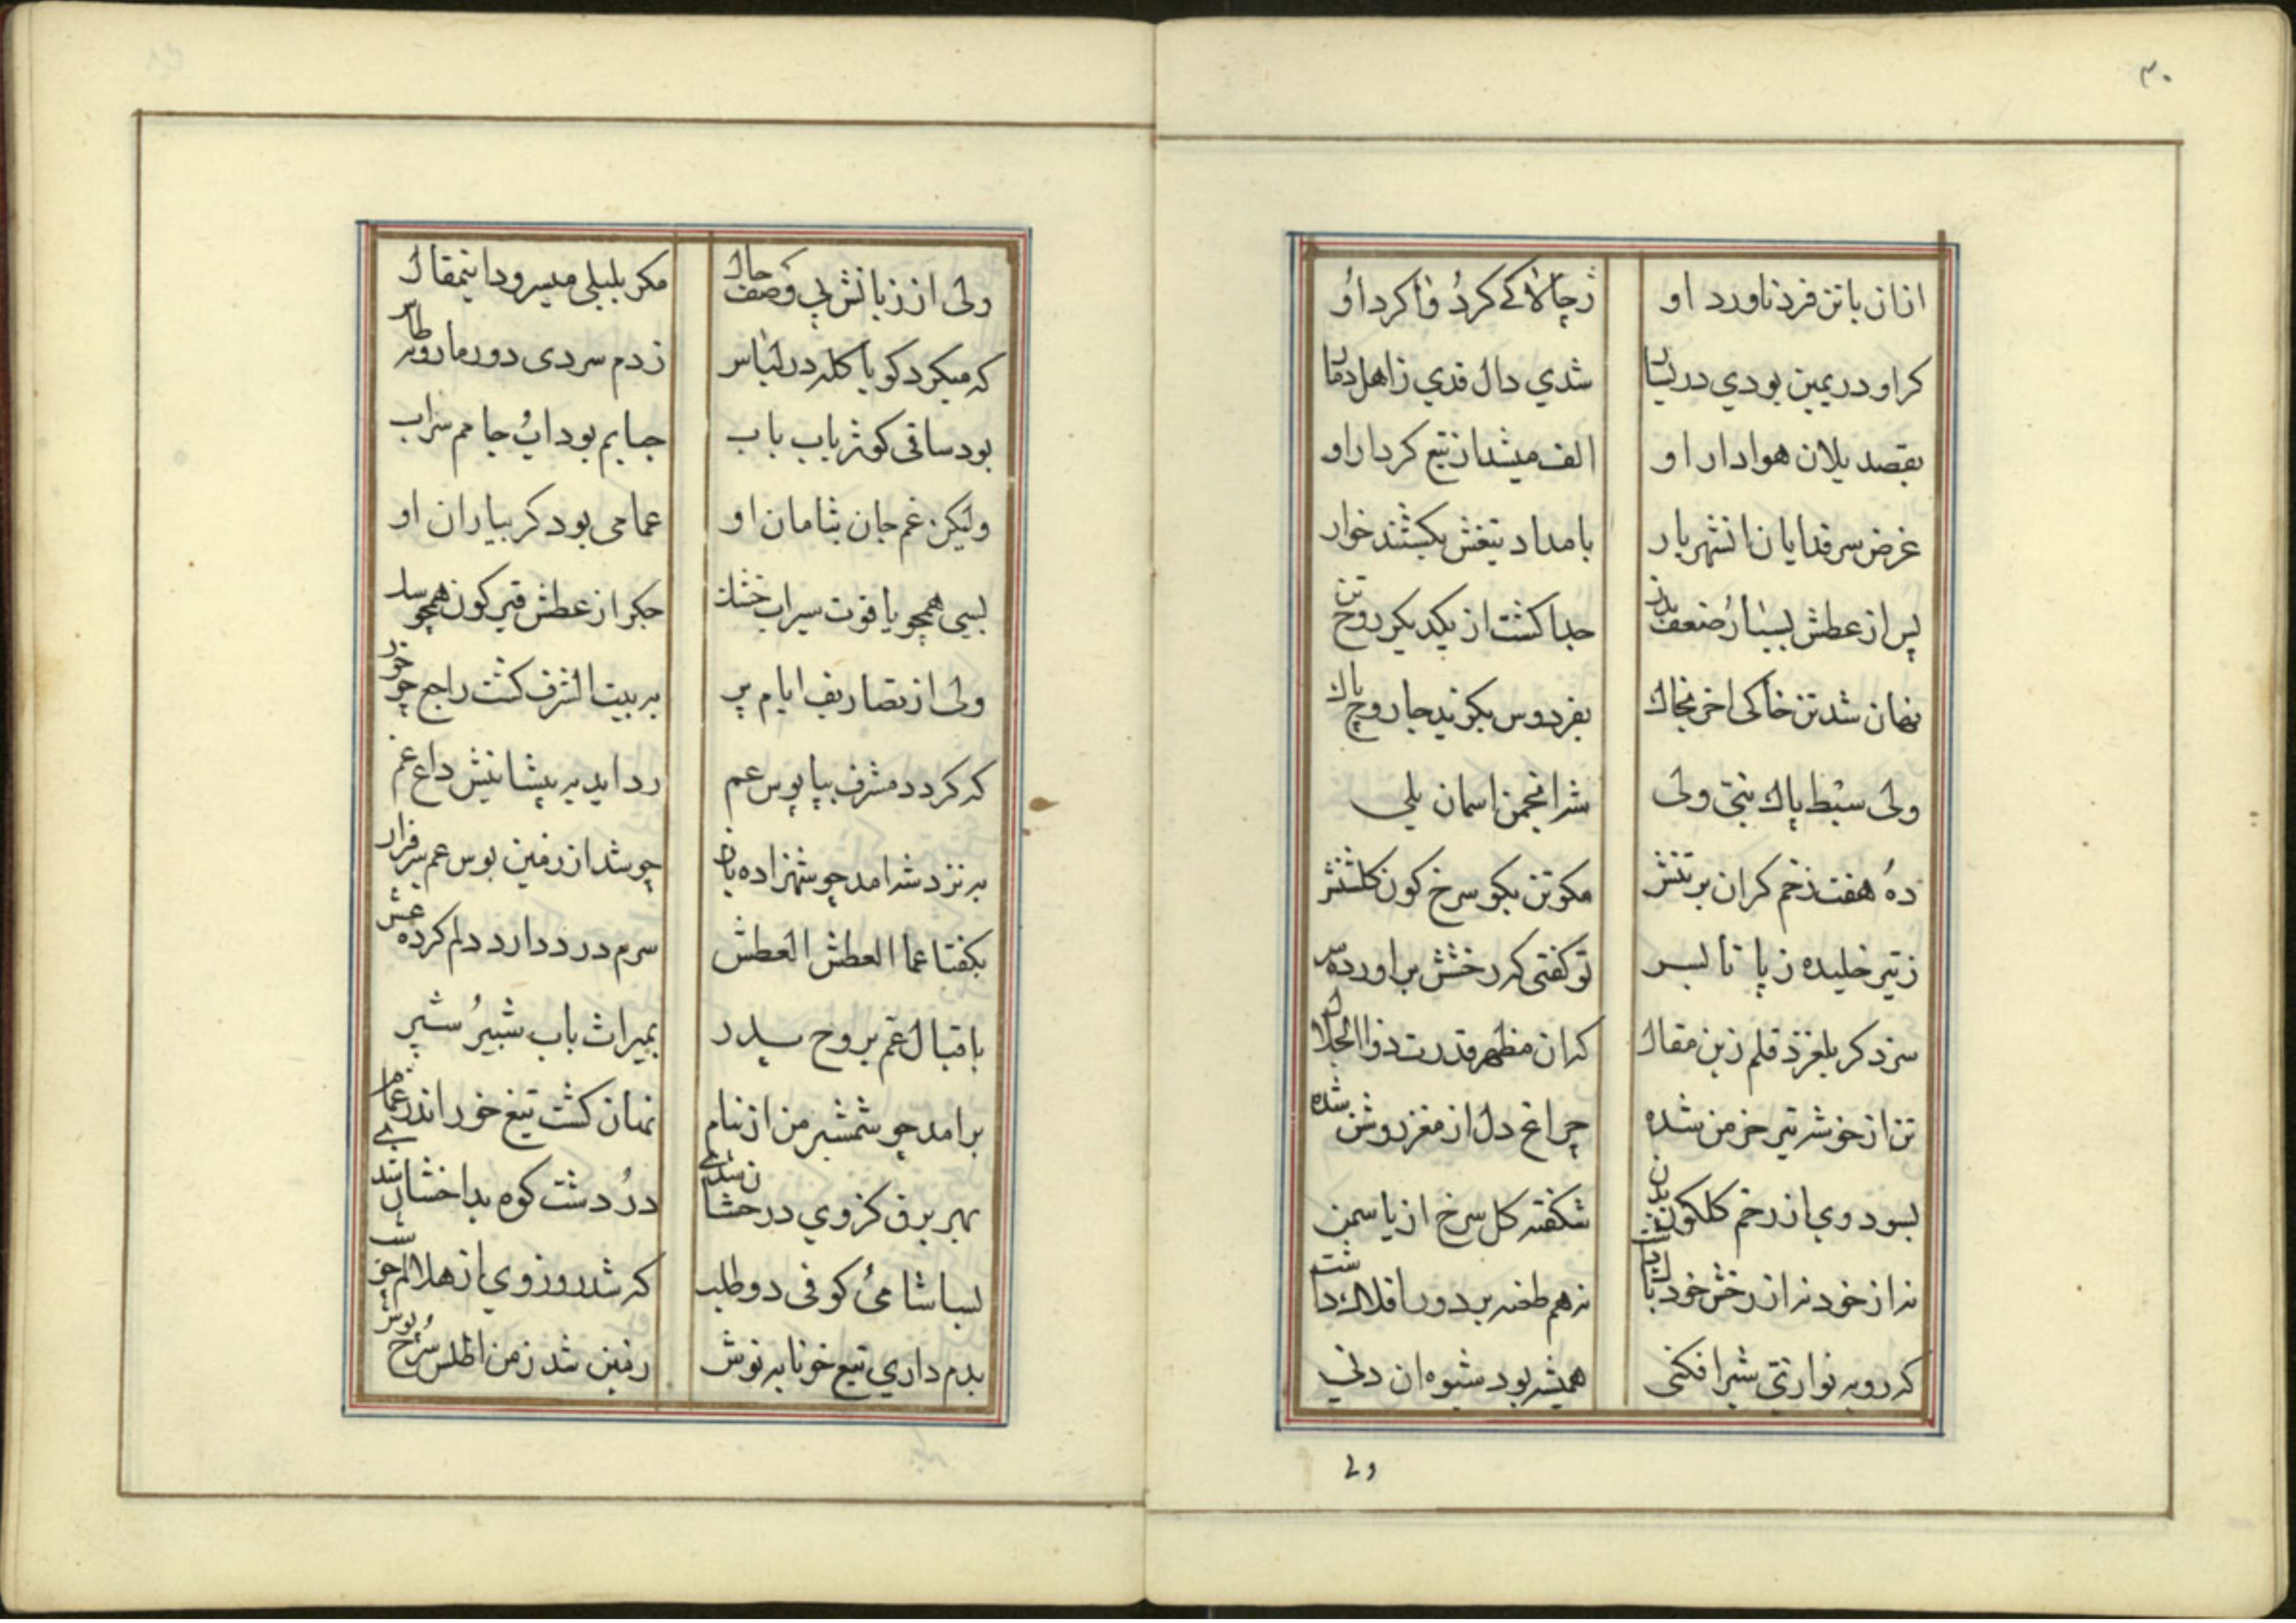 ۳۰
ازان باتن فرد ناورد او ز چالاکے کرد و فاکرد او
کر او در یمین بودي در یسار شدي دال قدي ز اهل دمار
بقصد یلان هوادار او الف میشد از تیغ کردار او
غرض سر فدایان انشهریار بامداد تیغش بکشتند خوار
پس از عطش بسیار ضعف بدن جدا کشت از یکدیکر روح تن
نهان شد تن خاکی اخر بخاک بفردوس بکزید جا روح پاک
ولی سبط پاك نبی ولی شرانجمن اسمان یلي
ده هفت زخم کران بر تنش مکو تن بکو سرخ کون کلشنش
ز تیر خلیده ز پا تا بسر تو کفتی که رخشش براورده پر
سزد کر بلغزد قلم زین مقال که ان مظهر قدرت ذوالجلال
تن از خوشه تیر خرمن شده چراغ دل از مغز روشن شده
بسود وي از زخم کلکون بدن شکفته کل سرخ از یاسمن
نه از خود نه از رخش خود باك داشت نه هم طعنه بر دور افلاك داشت
که روبه نوازتی شیرافکنی همیشه بود شیوه ان دني
ولے
ولی از زبانش پي وصف حال مکر بلبلی میسرود اینمقال
که میکرد کویا کله در لباس ز دم سردی دور ما رو بطاس
بود ساقی کوثر باب باب جبایم بود اب و جامم سراب
ولیکن غم جان بثامان او عمامی بود کر بیاران او
لبی همچو یاقوت سیراب خشك جکر از عطش قیر کون همچو
ولی از تصاریف ایام پر به بیت الشرف کشت راجع چو خور
که کردد مشرف بپابوس عم رداید به پیشانیش داغ غم
به نزد شه امد چو شهزاده باز چو شد از زمین بوس عم سرفراز
بکفتا عما العطش العطش سرم درد دارد دلم کرده غش
باقبال عم بروح پدر بمیراث باب شبیر و شبر
برامد چو شمشیر من از نیام نهان کشت تیغ خور اندر غمام
بهر برق کز وي درخشان شدے در و دشت کوه بداخشان شدے
بسا شامی و کوفی دو طلب که شد روز وي از هلالم چو شب
بدم داري تیغ خونابه نوش زمین شد ز من اطلس سرخ پوش